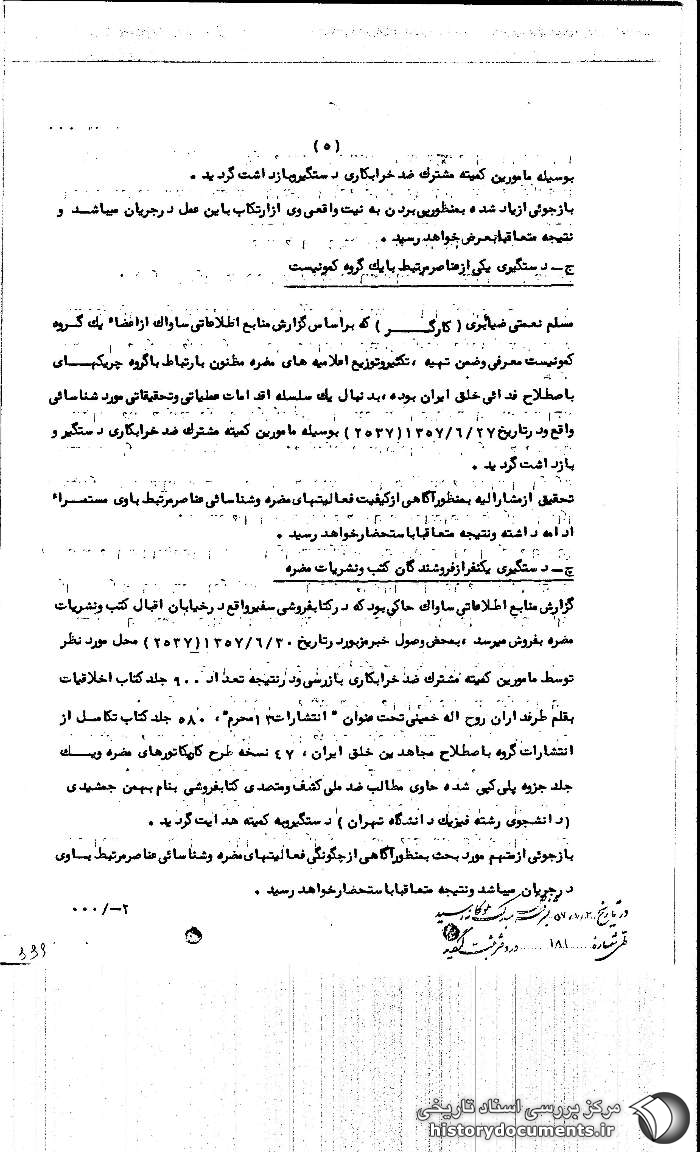 (٥)
بوسیله مامورین کمیته مشترك ضد خرابکاری دستگیروبازداشت گردید ٠
بازجوئی ازیاد شده بمنظورپی بردن به نیت واقعی وی ازارتکاب باین عمل درجریان میباشد و
نتیجه متعاقبابعرض خواهد رسید ٠
ج - دستگیری یکی ازعناصرمرتبط بایك گروه کمونیست
مسلم نعمتی ضیابری (کارگر) که براساس گزارش منابع اطلاعاتی ساواك ازاعضاء یك گروه
کمونیست معرفی وضمن تهیه ، تکثیروتوزیع اعلامیه های مضره مظنون بارتباط باگروه چریکهای
باصطلاح فدائی خلق ایران بوده ، بدنبال یك سلسله اقدامات عملیاتی وتحقیقاتی مورد شناسائی
واقع ودرتاریخ ١٣٥٧/٦/٢٧ (٢٥٣٧) بوسیله مامورین کمیته مشترك ضد خرابکاری دستگیر و
بازداشت گردید ٠
تحقیق ازمشارالیه بمنظورآگاهی ازکیفیت فعالیتهای مضره وشناسائی عناصرمرتبط باوی مستمراً
ادامه داشته ونتیجه متعاقباباستحضارخواهد رسید ٠
چ - دستگیری یکنفرازفروشندگان کتب ونشریات مضره
گزارش منابع اطلاعاتی ساواك حاکی بود که درکتابفروشی سفیرواقع درخیابان اقبال کتب ونشریات
مضره بفروش میرسد ، بمحض وصول خبرمزبوردرتاریخ ١٣٥٧/٦/٣٠ (٢٥٣٧) محل مورد نظر
توسط مامورین کمیته مشترك ضد خرابکاری بازرسی ودرنتیجه تعداد ٩٠٠ جلد کتاب اخلاقیات
بقلم طرفداران روح اله خمینی تحت عنوان " انتشارات ١٣محرم" ، ٥٨٠ جلد کتاب تکامل از
انتشارات گروه باصطلاح مجاهدین خلق ایران ، ٤٧ نسخه طرح کاریکاتورهای مضره ویك
جلد جزوه پلی کپی شده حاوی مطالب ضد ملی کشف ومتصدی کتابفروشی بنام بهمن جمشیدی
(دانشجوی رشته فیزیك دانشگاه تهران) دستگیروبه کمیته هدایت گردید ٠
بازجوئی ازمتهم مورد بحث بمنظورآگاهی ازچگونگی فعالیتهای مضره وشناسائی عناصرمرتبط باوی
درجریان میباشد ونتیجه متعاقباباستحضارخواهد رسید ٠
٢-/٠٠٠
در تاریخ
شماره ١٨١ در دفتر ثبت گردید
٣٣٩
مرکز بررسی اسناد تاریخی
historydocuments.ir